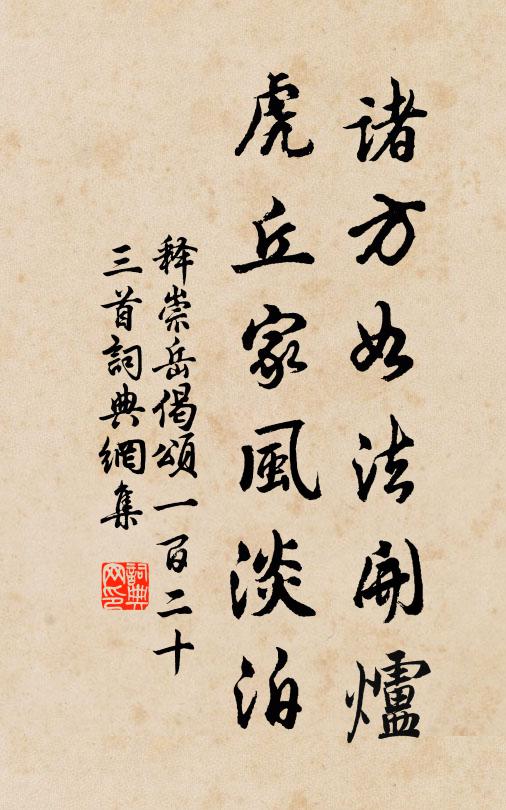 諸方如法開爐
虎丘家風淡泊
释崇岳偈頌一百二十
三首詞典網集
詞典网印